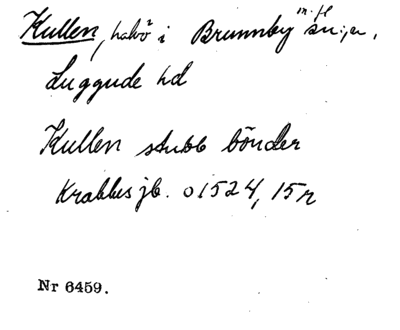 Kullen, halvö i Brunnby m. fl sn:r,
Luggude hd
Kullen stubb bönder
Krabbes jb. o 1524, 15r
Nr 6459.